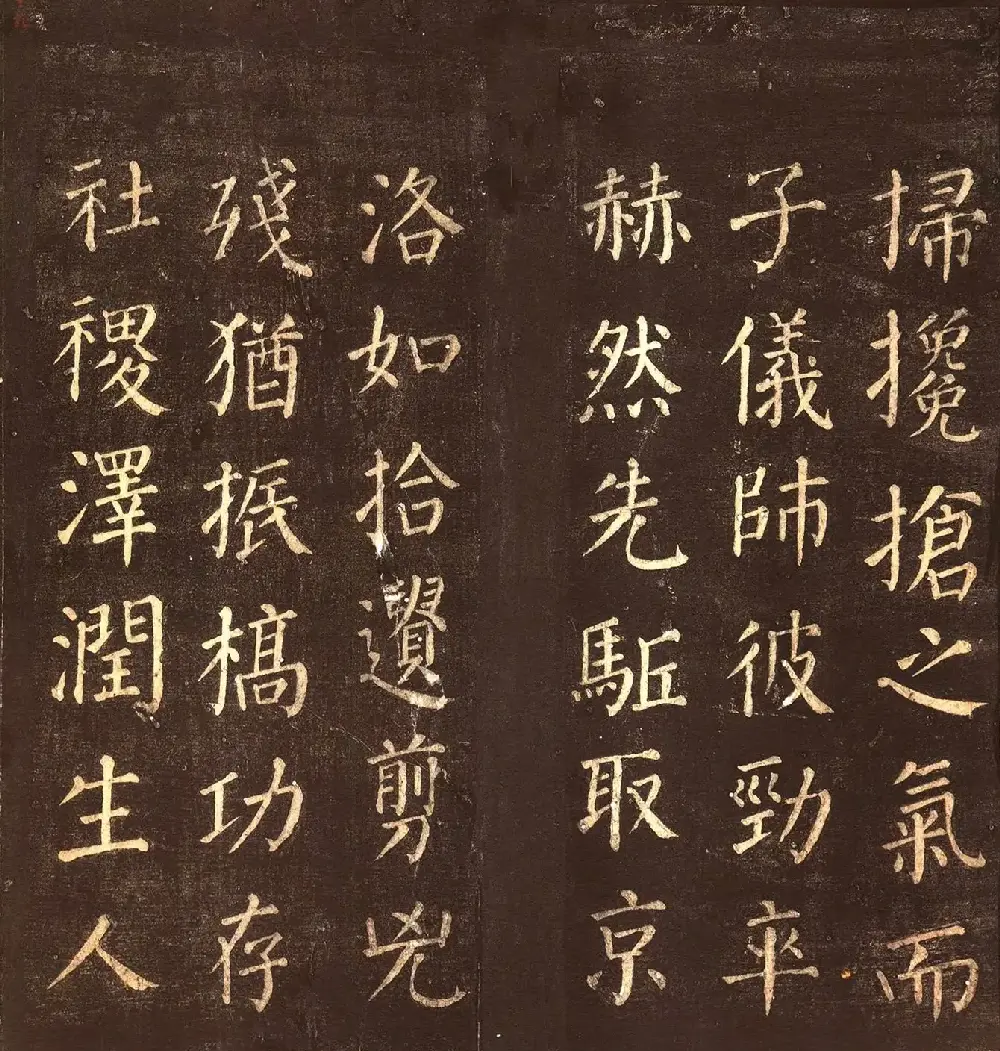 掃攙搶之氣而
子儀師彼勁卒
赫然先駈取京
洛如拾遺剪兇
殘猶振槁功存
社禝澤潤生人